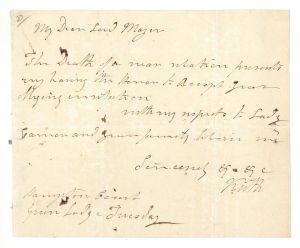 My Dear Lord Mayor
The Death of a near relation prevents
my having the Honor to Accept your
obliging invitation
with my respects to Lady
and your family believe me
Sincerely &c &c
Hampton Court
Tuesday